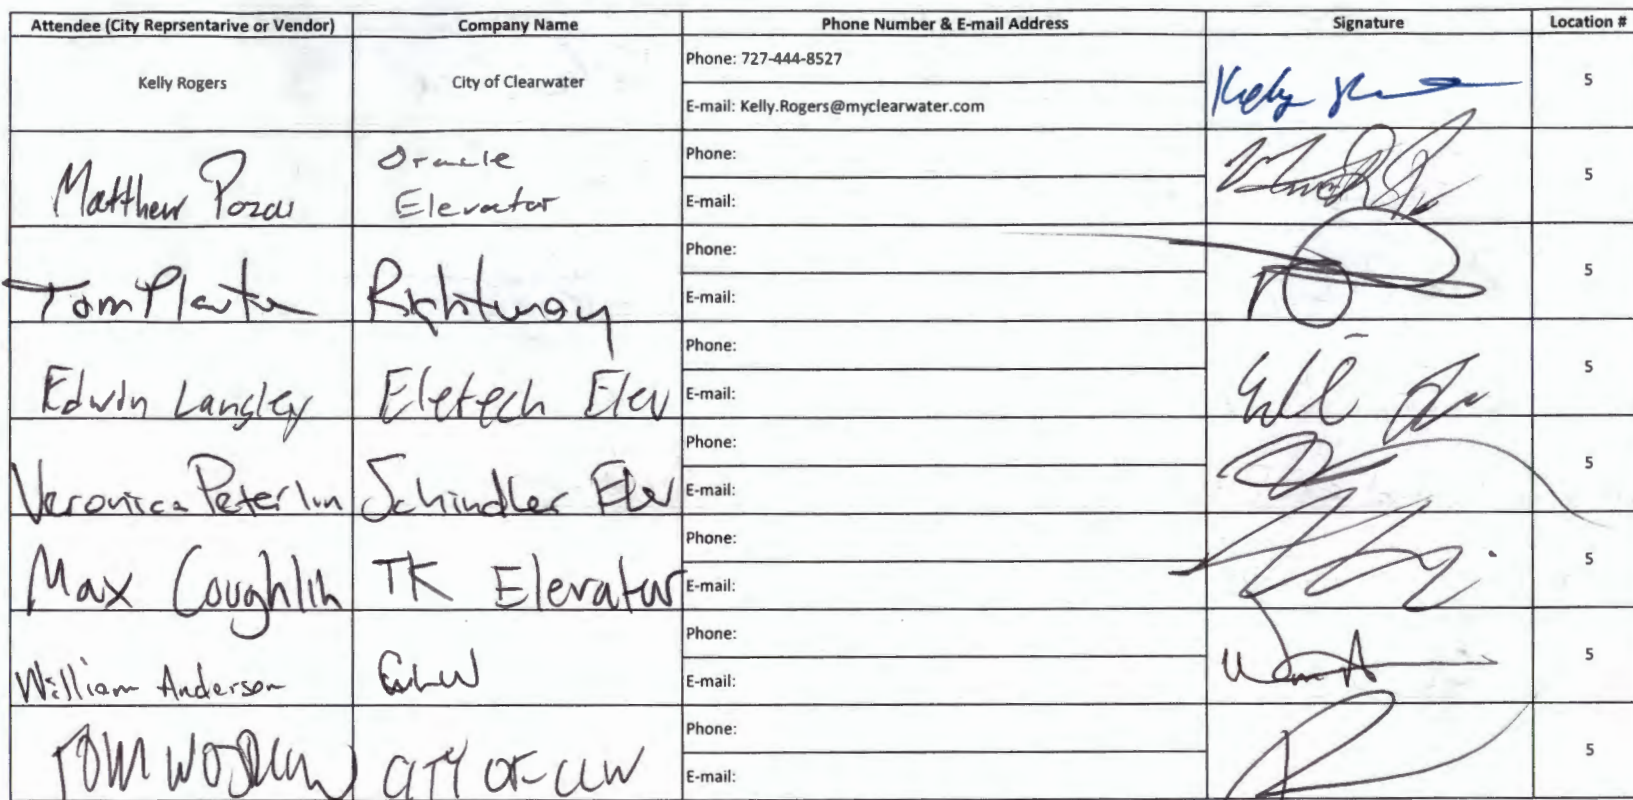 Attendee (City Reprsentarive or Vendor) Company Name Phone Number & E-mail Address Signature Location #
Kelly Rogers City of Clearwater Phone: 727-444-8527 5
E-mail: Kelly.Rogers@myclearwater.com
Matthew Oracle Phone: 5
Elevator E-mail:
Tom Rightway Phone: 5
E-mail:
Edwin Langley Eletech Elev Phone: 5
E-mail:
Veronica Peterlin Schindler Elev Phone: 5
E-mail:
Max Coughlin TK Elevator Phone: 5
E-mail:
William Anderson Phone: 5
E-mail:
TOM CITY OF CLW Phone: 5
E-mail: